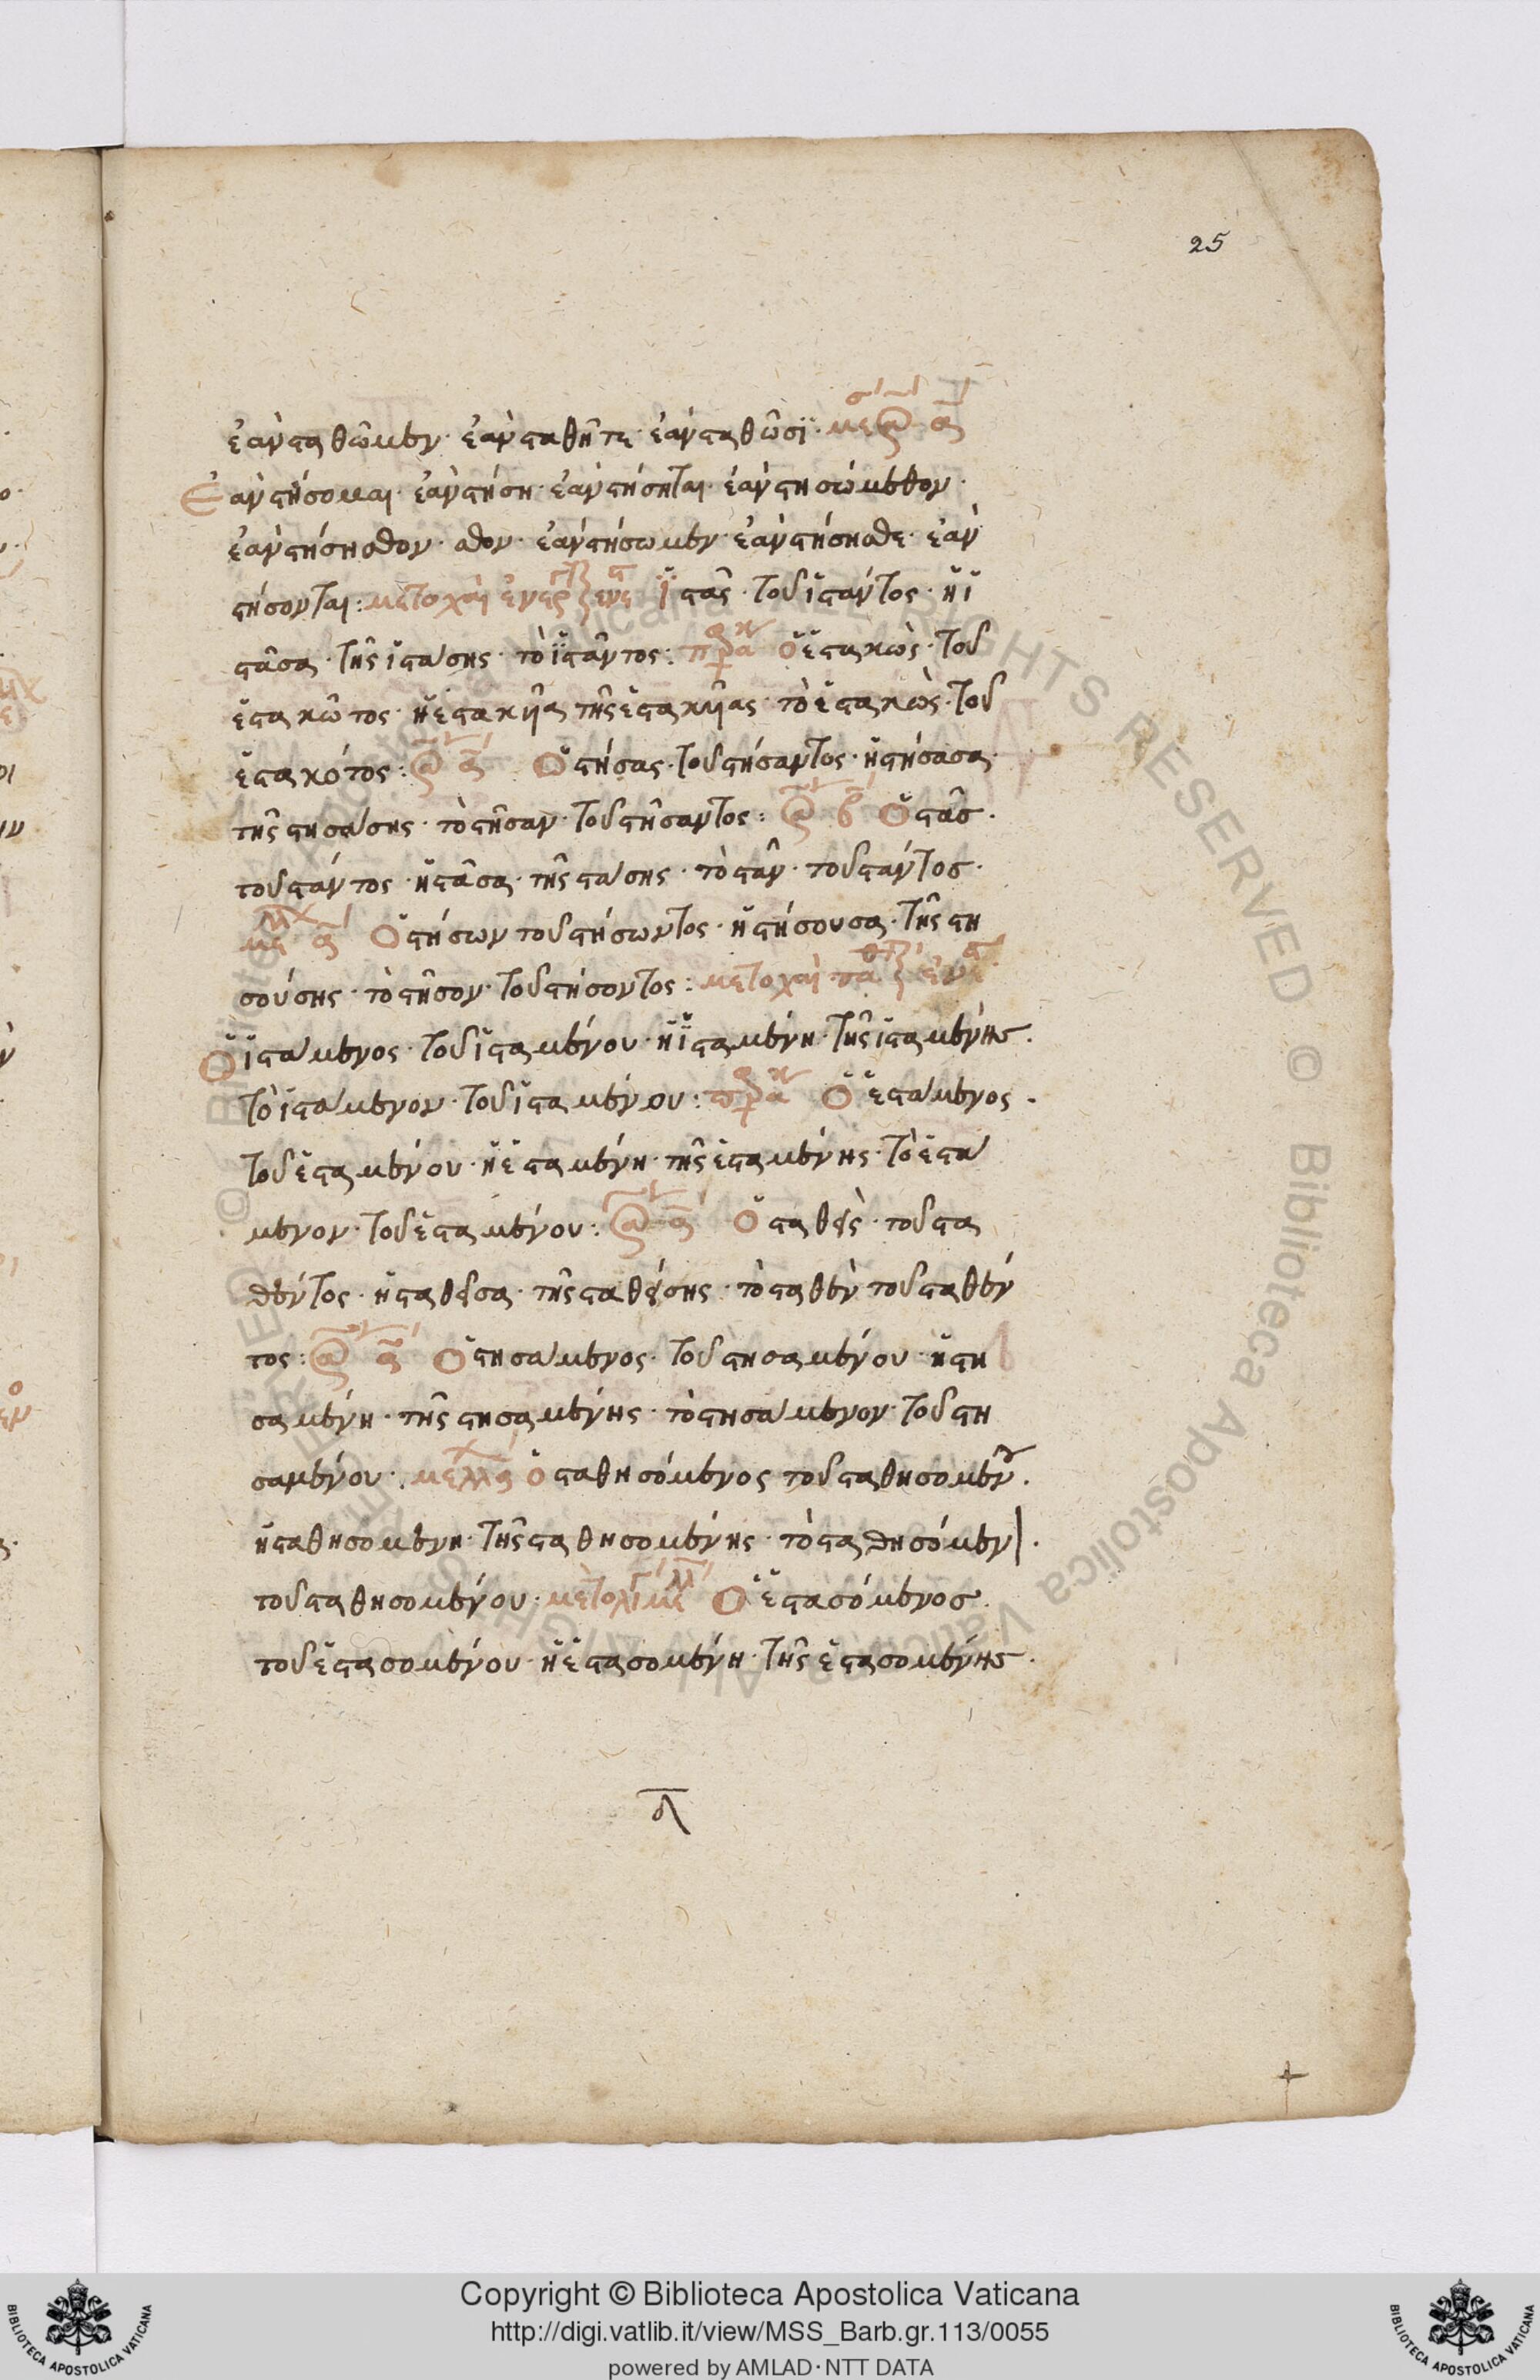 25
ἐὰν σταθῶμεν· ἐὰν σταθῆτε· ἐὰν σταθῶσϊ·
Ἐὰν στήσομαι· ἐὰν στήση· ἐὰν στήσηται· ἐὰν στησώμεθον·
ἐὰν στήσησθον· σθον· ἐὰν στήσωμεν· ἐὰν στήσησθε· ἐὰν
στήσονται: μετοχαὶ ἱστὰς· τοῦ ἱστάντος· ἡ ἱ
στᾶσα· τῆς ἱστάσης· τὸ ἱστᾶντος: ὁ ἑστακὼς· τοῦ
ἑστακῶτος· ἡ ἑστακυῖα τῆς ἑστακυίας· τὸ ἑστακὼς· τοῦ
ἑστακότος: Ὁ στήσας· τοῦ στήσαντος· ἡ στήσασα·
τῆς στησάσης· τὸ στῆσαν· τοῦ στῆσαντος: β Ὁ στᾶσ·
τοῦ στάντος· ἡ στᾶσα· τῆς στάσης· τὸ στᾶν· τοῦ στάντοσ·
Ὁ στήσων τοῦ στήσωντος· ἡ στήσουσα· τῆς στη
σούσης· τὸ στῆσον· τοῦ στήσοντος: μετοχαὶ
Ὁ ἱστάμενος· τοῦ ἱσταμένου· ἡ ἱσταμένη· τῆς ἱσταμένης·
τὸ ἱστάμενον· τοῦ ἱσταμένου: Ὁ ἑστάμενος·
τοῦ ἑσταμένου· ἡ ἑσταμένη· τῆς ἑσταμένης· τὸ ἑστά
μενον· τοῦ ἑσταμένου: Ὁ σταθεὶς· τοῦ στα
θέντος· ἡ σταθεῖσα· τῆς σταθείσης· τὸ σταθὲν τοῦ σταθέν
τος: Ὁ στησάμενος· τοῦ στησαμένου· ἡ στη
σαμένη· τῆς στησαμένης· τὸ στησάμενον· τοῦ στη
σαμένου· ὁ σταθησόμενος τοῦ σταθησομένου·
ἡ σταθησομένη· τῆς σταθησομένης· τὸ σταθησόμεν·
τοῦ σταθησομένου· Ὁ ἑστασόμενοσ·
τοῦ ἑστασομένου· ἡ ἑστασομένη· τῆς ἑστασομένης·
Copyright © Biblioteca Apostolica Vaticana
http://digi.vatlib.it/view/MSS_Barb.gr.113/0055
powered by AMLAD·NTT DATA